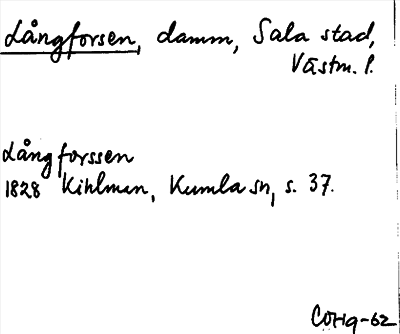 Långforsen, damm, Sala stad,
Västm. l.
Långforssen
1828 Kihlman, Kumla sn, s. 37.